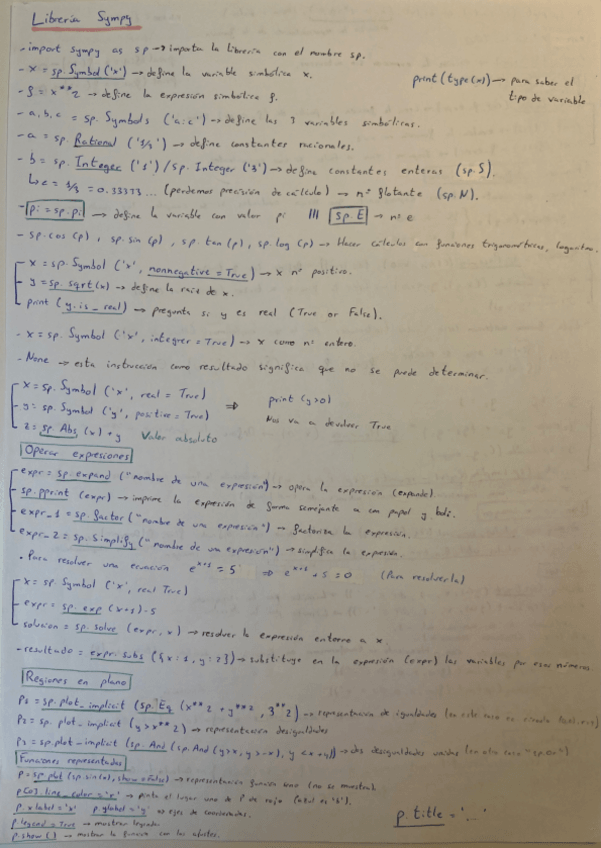 Librería Sympy
- import sympy as sp → importa la librería con el nombre sp.
- x = sp.Symbol('x') → define la variable simbólica x.
print(type(x)) → para saber el tipo de variable
- f = x**2 → define la expresión simbólica f.
- a,b,c = sp.Symbols ('a:c') → define las 3 variables simbólicas.
- a = sp.Rational ('1/3') → define constantes racionales.
- b = sp.Integer ('1') / sp.Integer ('3') → define constantes enteras (sp.S).
↳ c = 1/3 = 0.33333... (perdemos precisión de cálculo) → nº flotante (sp.N).
- pi = sp.pi → define la variable con valor pi III sp.E → nº e
- sp.cos(p), sp.sin(p), sp.tan(p), sp.log(p) → Hacer cálculos con funciones trigonométricas, logaritmo.
- x = sp.Symbol ('x', nonnegative = True) → x nº positivo.
- y = sp.sqrt(x) → define la raíz de x.
- print (y.is_real) → pregunta si y es real (True or False).
- x = sp.Symbol ('x', integrer = True) → x como nº entero.
- None → esta instrucción como resultado significa que no se puede determinar.
- x = sp.Symbol ('x', real = True) ⇒ print (y>0)
- y = sp.Symbol ('y', positive = True) Nos va a devolver True
- z = sp.Abs (x) + y Valor absoluto
Operar expresiones
- expr = sp.expand ("nombre de una expresión") → opera la expresión (expande).
- sp.pprint (expr) → imprime la expresión de forma semejante a con papel y boli.
- expr_1 = sp.factor ("nombre de una expresión") → factoriza la expresión.
- expr_2 = sp.Simplify ("nombre de una expresión") → simplifica la expresión.
• Para resolver una ecuación = 5 ⇒ = 0 (Para resolverla)
- x = sp.Symbol ('x', real True)
- expr = sp.exp (x+1)-5
- solucion = sp.solve (expr, x) → resolver la expresión entorno a x.
- resultado = expr.subs ({x:1, y:2}) → substituye en la expresión (expr) las variables por esos números
Regiones en plano
= sp.plot_implicit (sp.Eq (x**2 + y**2, 3**2)) → representación de igualdades (en este caso un círculo
p2 = sp.plot_implicit (y > x**2) → representación desigualdades
p3 = sp.plot-implicit (sp.And (sp.And (y>x, y>-x), y<x+4)) → dos desigualdades unidas (en otro caso "sp.Or")
Funciones representadas
p = sp.plot (sp.sin(x), show=False) → representación función seno (no se muestra).
p[0].line_color = 'r' → pinta el lugar uno de P de rojo (azul es 'b').
p.xlabel = 'x' p.ylabel = 'y' → ejes de coordenadas.
p.legend = True → mostrar leyenda.
p.title = '...'
p.show() → mostrar la función con los ajustes.